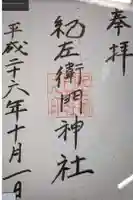 奉拝
左衛門神社
平成二十六年十月一日